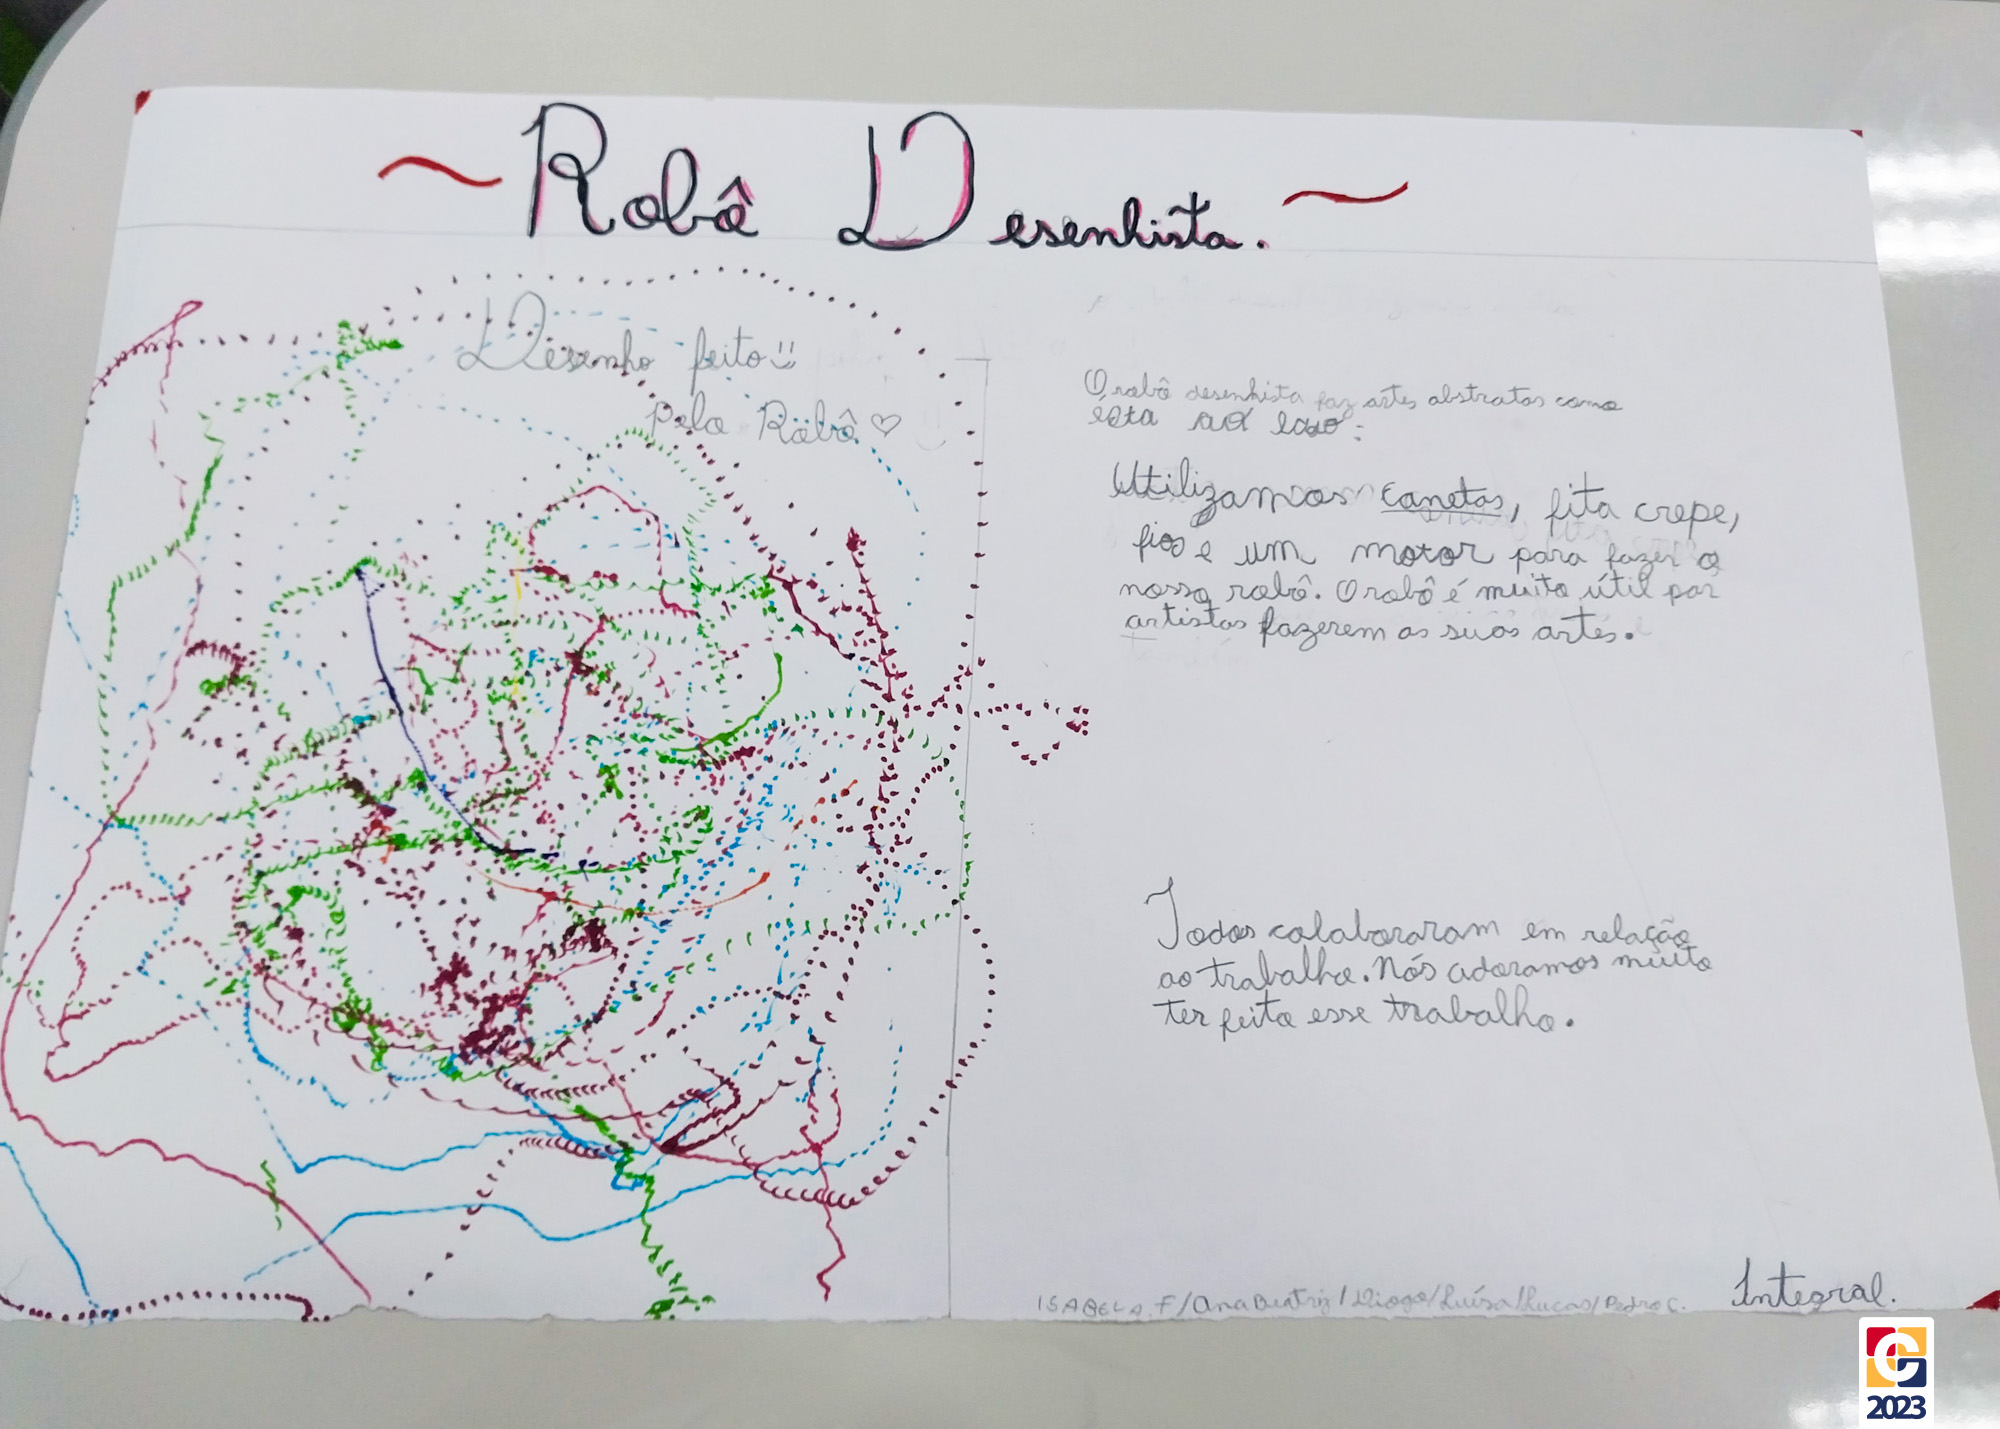 ~ Robô Desenhista. ~
Desenho feito
pelo Robô ♡
O robô desenhista faz artes abstratas como
esta ao lado:
Utilizamos canetas, fita crepe,
fios e um motor para fazer o
nosso robô. O robô é muito útil par
artistas fazerem as suas artes.
Todos colaboraram em relação
ao trabalho. Nós adoramos muito
ter feito esse trabalho.
ISABELA.F/Ana Beatriz/Diogo/Luísa/Lucas/Pedro C.
Integral.
2023